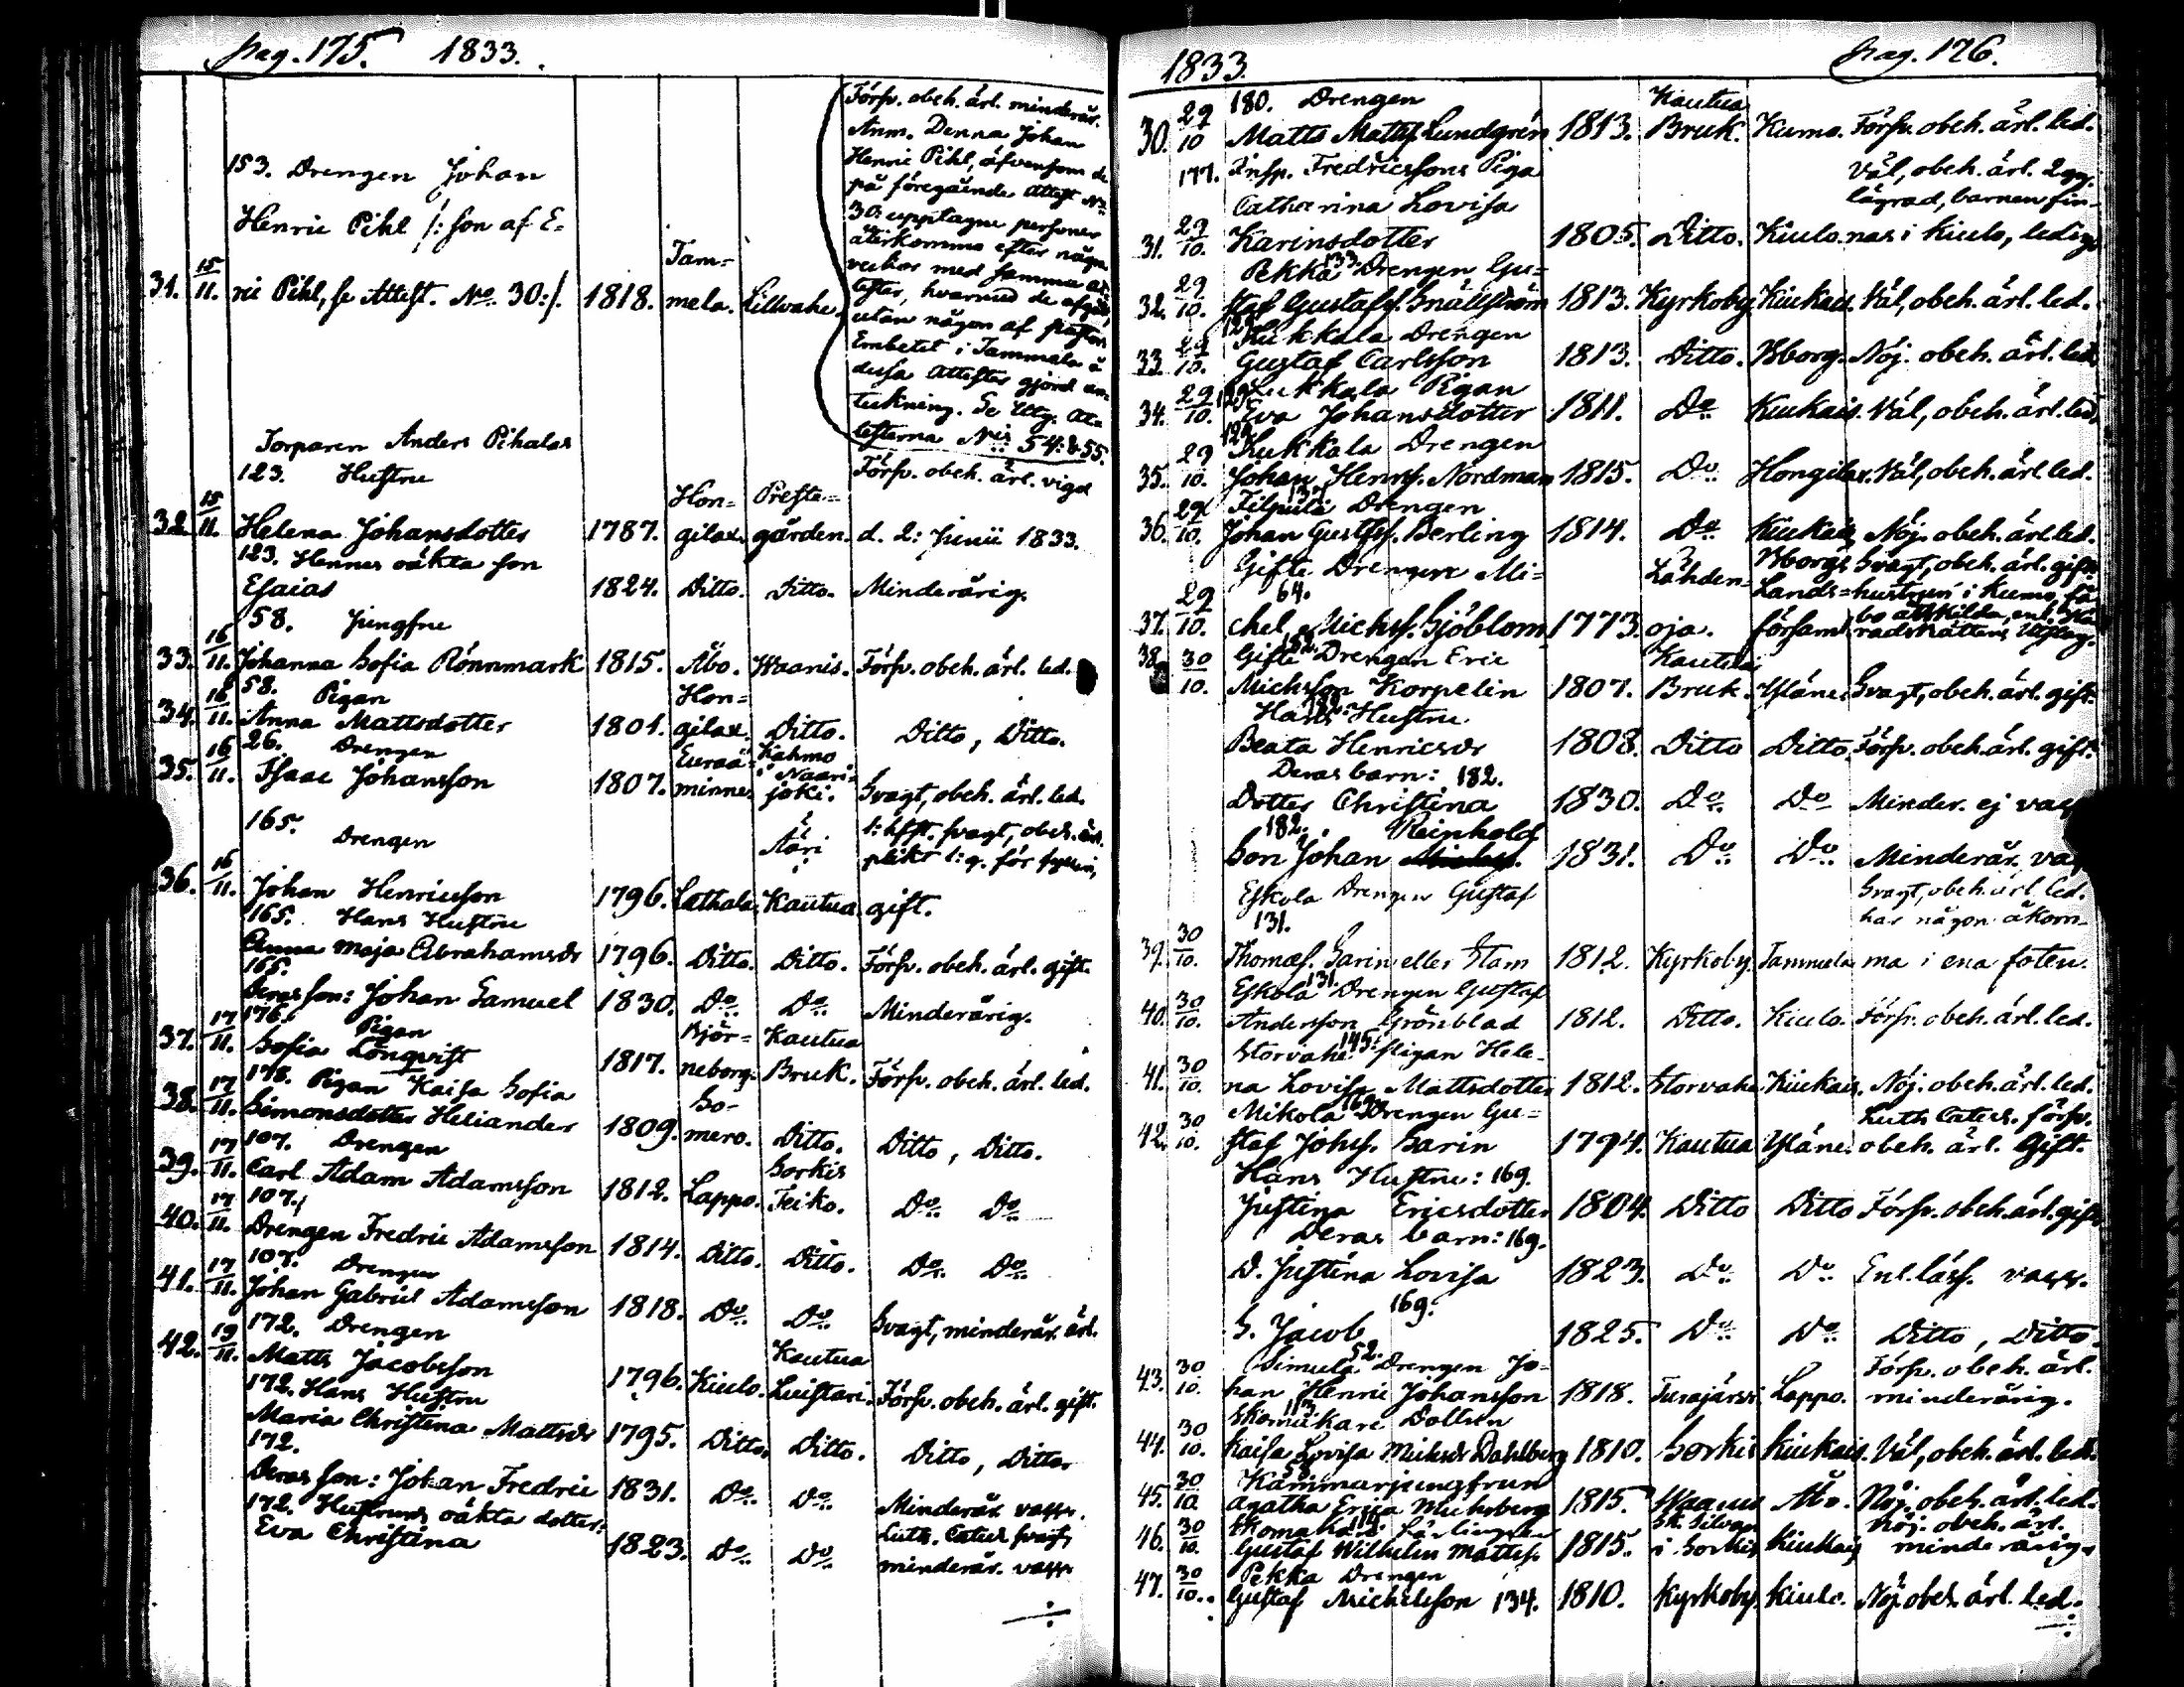 pag. 175. 1833.
Försv. obeh. ärl. minderår.
Anm. Denna Johan
Henric Pihl, äfvensom de
på föregående Attest No
30. upptagne personer
återkomma efter några
veckor med samma at-
tester, hvarmed de afgått,
utan någon af Pastors
Embetet i Tammela å
dessa attester gjord an-
teckning. Se Utg. At-
testerna N:is 54. & 55.
153. Drengen Johan
Henric Pihl /: son af E-
31. 15/11. ric Pihl, se Attest. No. 30:/. 1818. Tam-
mela. Lillvahe.
Torparen Anders Pihalas
123. Hustru
32. 15/11. Helena Johansdotter 1787. Hon-
gilax. Preste-
gården. Försv. obeh. ärl. vigd
d. 2: Junii 1833.
123. Hennes oäkta son
Esaias 1824. Ditto. Ditto. Minderårig.
58. Jungfru
33. 16/11. Johanna Sofia Rönnmark 1815. Åbo. Waanis. Försv. obeh. ärl. led.
58. Pigan
34. 16/11. Anna Mattsdotter 1801. Hon-
gilax. Ditto. Ditto, Ditto.
26. Drengen
35. 16/11. Isaac Johansson 1807. Euraå-
minne. Kahmo
i Naari-
joki. Svagt, obeh. ärl. led.
165. Drengen
36. 16/11. Johan Henricsson 1796. Lethala. Ääri
i
Kautua 1: hfft. svagt, obeh. ärl.
plikt 1: g. för
gift.
165. Hans Hustru
Anna Maja Abrahamsdr 1796. Ditto. Ditto. Försv. obeh. ärl. gift.
165.
Deras son: Johan Samuel 1830. Do. Do. Minderårig.
176. Pigan
37. 17/11. Sofia Lönqvist 1817. Björ-
neborg. Kautua
Bruk. Försv. obeh. ärl. led.
178. Pigan Kaisa Sofia
38. 17/11. Simonsdotter Heliander 1809. So-
mero. Ditto. Ditto, Ditto.
107. Drengen
39. 17/11. Carl Adam Adamsson 1812. Lappo. Sorkis
Teiko. Do. Do.
107.
40. 17/11. Drengen Fredric Adamsson 1814. Ditto. Ditto. Do. Do.
107. Drengen
41. 17/11. Johan Gabriel Adamsson 1818. Do. Do. Svagt, minderår. ärl.
172. Drengen
42. 19/11. Matts Jacobsson 1796. Kiulo. Kautua
Luistari. Försv. obeh. ärl. gift.
172. Hans Hustru
Maria Christina Mattsdr 1795. Ditto. Ditto. Ditto, Ditto.
172.
Deras son: Johan Fredric 1831. Do. Do. Minderår. vacc.
172. Hustruns oäkta dotter:
Eva Christina 1823. Do. Do. Luth. Catech. svagt,
minderår. vacc.
1833. pag. 176.
180. Drengen
30. 29/10 Matts Mattss. Lundgrén 1813. Kautua
Bruk. Kumo. Försv. obeh. ärl. led.
177. Insp. Fredricssons Piga
Catharina Lovisa
31. 29/10. Karinsdotter 1805. Ditto. Kiulo. Väl, obeh. ärl. 2 gg.
lägrad, barnen fin-
nas i Kiulo, ledig
Pekka 133. Drengen Gu-
32. 29/10. staf Gustafss. Snällström 1813. Kyrkoby. Kiukais. Väl, obeh. ärl. led.
129. Kukkala Drengen
33. 29/10. Gustaf Carlsson 1813. Ditto. Ulfsborg. Nöj. obeh. ärl. led.
129. Kukkala Pigan
34. 29/10. Eva Johansdotter 1811. Do. Kiukais. Väl, obeh. ärl. led.
129. Kukkala Drengen
35. 29/10. Johan Henrss. Nordman 1815. Do. Hongilax. Väl, obeh. ärl. led.
Filpula 137. Drengen
36. 29/10. Johan Gustfss. Berling 1814. Do. Kiukais. Nöj. obeh. ärl. led.
Gifte Drengen Mi-
64.
37. 29/10. chel Michss. Sjöblom 1773. Lähden-
oja. Ulfsborgs
Lands-
församl. Svagt, obeh. ärl. gift
hustrun i Kumo,
bo åtskilda, enl. Hä-
radsrättens Utslag.
Gifte 182. Drengen Eric
38. 30/10. Michsson Korpelin 1807. Kautua
Bruk. Yläne. Svagt, obeh. ärl. gift.
Hans 182. Hustru
Beata Henricsdr 1808. Ditto Ditto. Försv. obeh. ärl. gift.
Deras barn: 182.
Dotter Christina 1830. Do. Do. Minder. ej vacc
182. Reinhold
Son Johan 1831. Do. Do. Minderår. vac
Eskola Drengen Gustaf
131.
39. 30/10. Thomæs. Sarin eller Stam 1812. Kyrkoby. Tammela Svagt, obeh. ärl. led.
har någon åkom-
ma i ena foten.
Eskola 131. Drengen Gustaf
40. 30/10. Andersson Grönblad 1812. Ditto. Kiulo. Försv. obeh. ärl. led.
Storvahe 145. Pigan Hele-
41. 30/10. na Lovisa Mattsdotter 1812. Storvahe Kiukais. Nöj. obeh. ärl. led.
Mikola 169. Drengen Gu-
42. 30/10. staf Johss. Sarin 1794. Kautua Yläne. Luth. Catech. försv.
obeh. ärl. Gift.
Hans Hustru: 169.
Justina Ericsdotter 1804. Ditto Ditto Försv. obeh. ärl. gift
Deras barn: 169.
D. Justina Lovisa 1823. Do. Do. Enl. läsf. vacc.
169.
S. Jacob 1825. Do. Do. Ditto, Ditto.
Simula 52. Drengen Jo-
43. 30/10. han Henric Johansson 1818. Turajärvi Lappo. Försv. obeh. ärl.
minderårig.
Skomakare 113. Dottren
44. 30/10. Kaisa Lovisa Michsdr Dahlberg 1810. Sorkis Kiukais. Väl, obeh. ärl. led.
58. Kammarjungfrun
45. 30/10. Agatha Erica Michsberg 1815. Waanis Åbo. Nöj. obeh. ärl. led.
Skomakare 114. Lärlingen
46. 30/10. Gustaf Wilhelm Mattss. 1815. Sk. Silvan
i Sorkis Kiukais Nöj. obeh. ärl.
minderårig.
Pekka Drengen
47. 30/10. Gustaf Michelsson 134. 1810. Kyrkoby. Kiulo. Nöj. obeh. ärl. led.